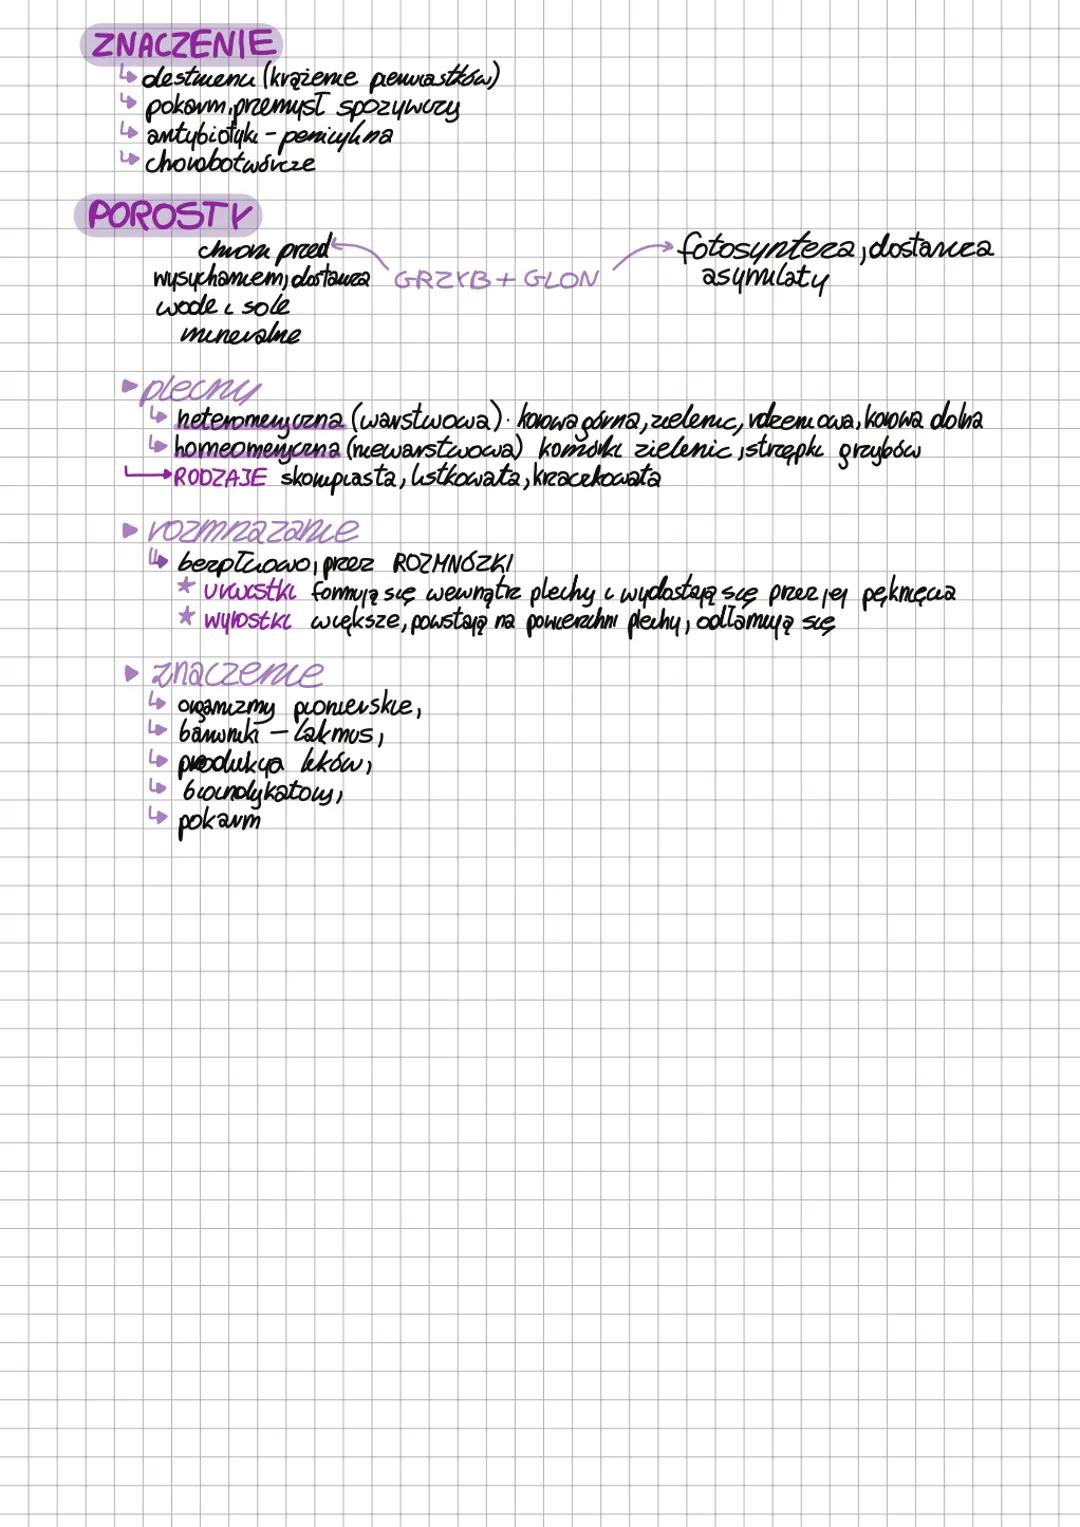 ZNACZENIE
↳ destruenci (krążenie pierwiastków)
↳ pokarm, przemysł spożywczy
↳ antybiotyki - penicylina
↳ chorobotwórcze
POROSTY
chroni przed wysychaniem, dostarcza wodę i sole mineralne
GRZYB + GLON
fotosynteza, dostarcza asymilaty
▸ plechy
↳ heteromeryczna (warstwowa) · korowa górna, zielenic, rdzeniowa, korowa dolna
↳ homeomeryczna (niewarstwowa) komórki zielenic, strzępki grzybów
→ RODZAJE skorupiasta, listkowata, krzaczkowata
▸ rozmnażanie
↳ bezpłciowo, przez ROZMNÓŻKI
★ urwistki formują się wewnątrz plechy i wydostają się przez jej pęknięcia
★ wyrostki większe, powstają na powierzchni plechy, odłamują się
▸ znaczenie
↳ organizmy pionierskie,
↳ barwniki – lakmus,
↳ produkcja leków,
↳ bioindykatory,
↳ pokarm